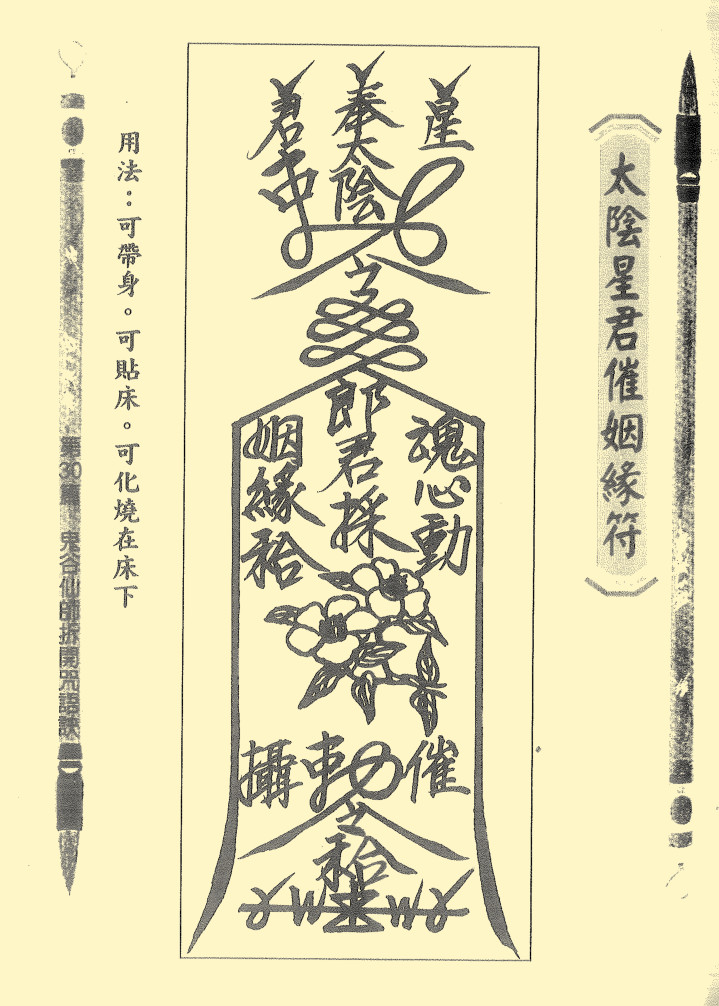 ︽太陰星君催姻緣符︾
星
奉太陰
君
郎君採
魂心動
姻緣袷
催
勅
攝
用法：可帶身。可貼床。可化燒在床下
第30篇 鬼谷仙師拆開咒語訣